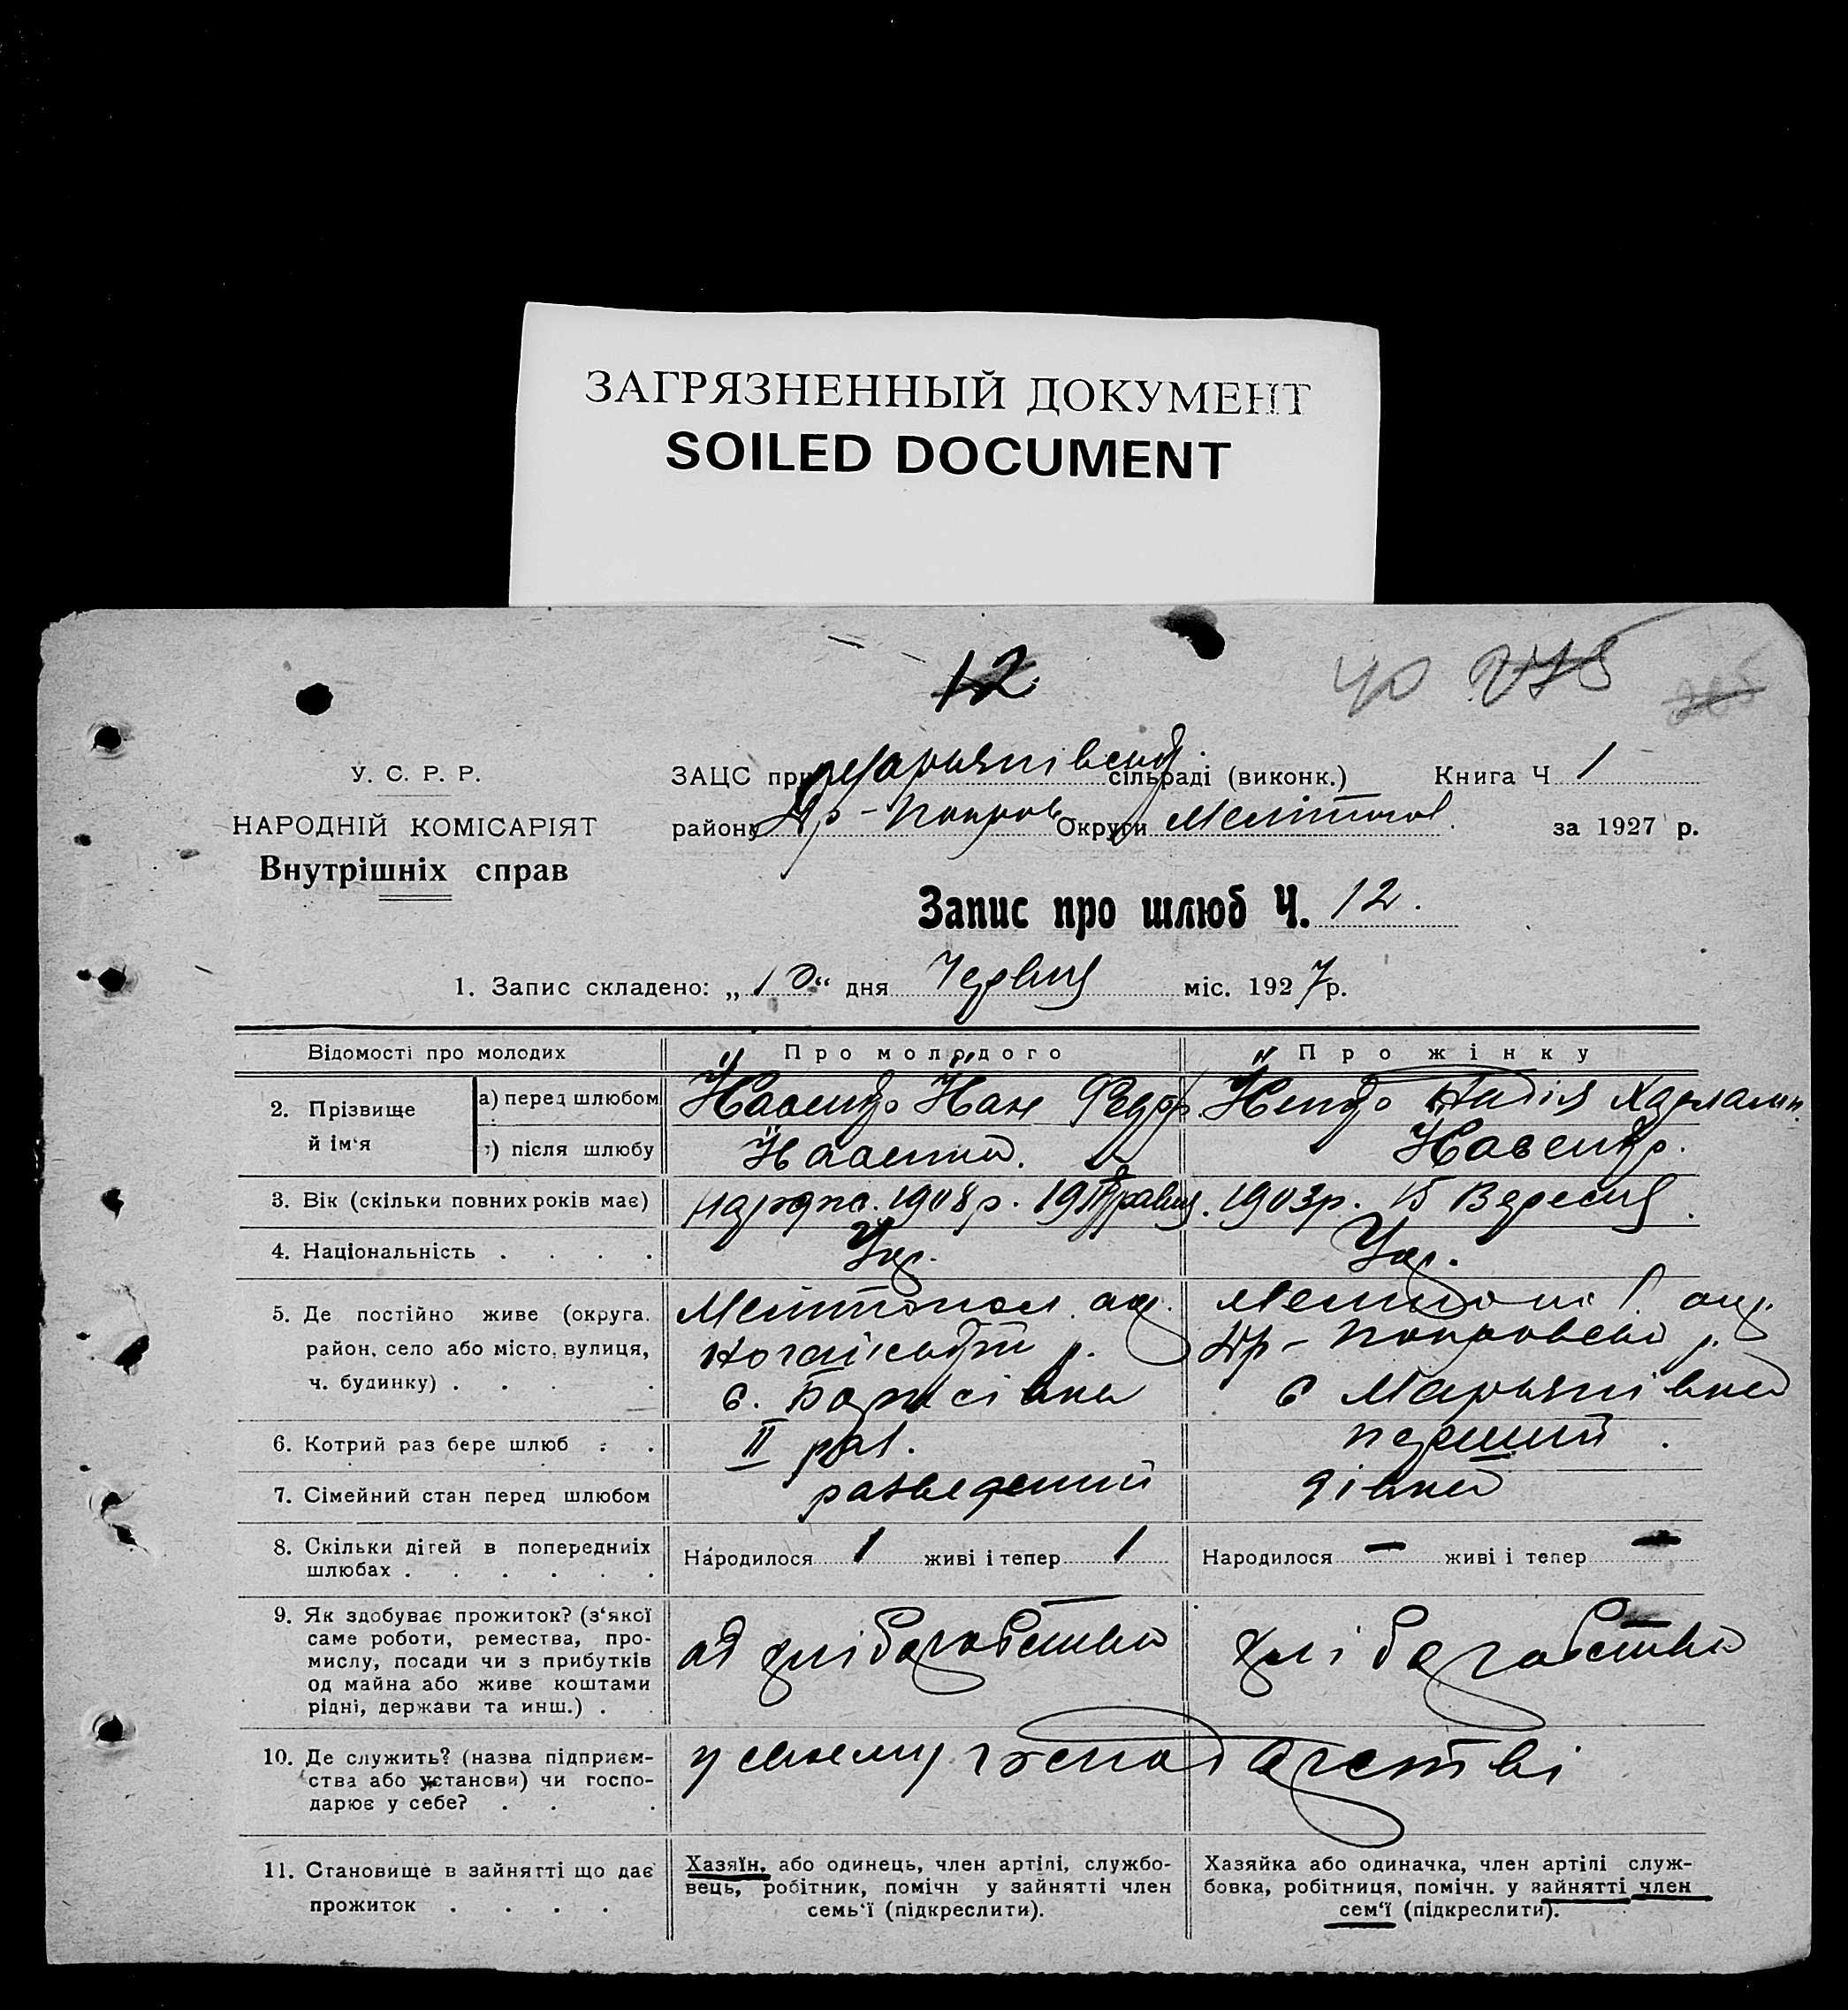 ЗАГРЯЗНЕННЫЙ ДОКУМЕНТ
SOILED DOCUMENT
12
У. С. Р. Р.
НАРОДНІЙ КОМІСАРІЯТ
Внутрішніх справ
ЗАЦС при Марьянівській сільраді (виконк.) Книга Ч 1
району Др-Покров Округи Мелітопол за 1927 р.
Запис про шлюб Ч. 12.
1. Запис складено: „10“ дня Червня міс. 1927 р.
Відомості про молодих Про молодого Про жінку
2. Прізвище й ім'я
а) перед шлюбом
) після шлюбу
3. Вік (скільки повних років має) 1908 р. 19 Травня. 1903 р. 15 Вересня.
4. Національність . . . . Укр. Укр.
5. Де постійно живе (округа, Мелітопол окр. окр.
район, село або місто, вулиця, р. Др-Покровська р.
ч. будинку) . . . . с. Борисівка с Марьянівка
6. Котрий раз бере шлюб . . II раз. перший.
7. Сімейний стан перед шлюбом разведений дівка
8. Скільки дітей в попередніх Народилося 1 живі і тепер 1 Народилося — живі і тепер —
шлюбах . . . . . .
9. Як здобуває прожиток? (з'якої
саме роботи, ремества, про-
мислу, посади чи з прибутків од хліборобства хліборобства
од майна або живе коштами
рідні, держави та инш.) .
10. Де служить? (назва підприєм- у своему господарстві
ства або установи) чи госпо-
дарює у себе? . . .
11. Становище в зайнятті що дає
прожиток . . . .
Хазяїн, або одинець, член артілі, службо-
вець, робітник, помічн у зайнятті член
семь'ї (підкреслити).
Хазяйка або одиначка, член артілі служ-
бовка, робітниця, помічн. у зайнятті член
сем'ї (підкреслити).